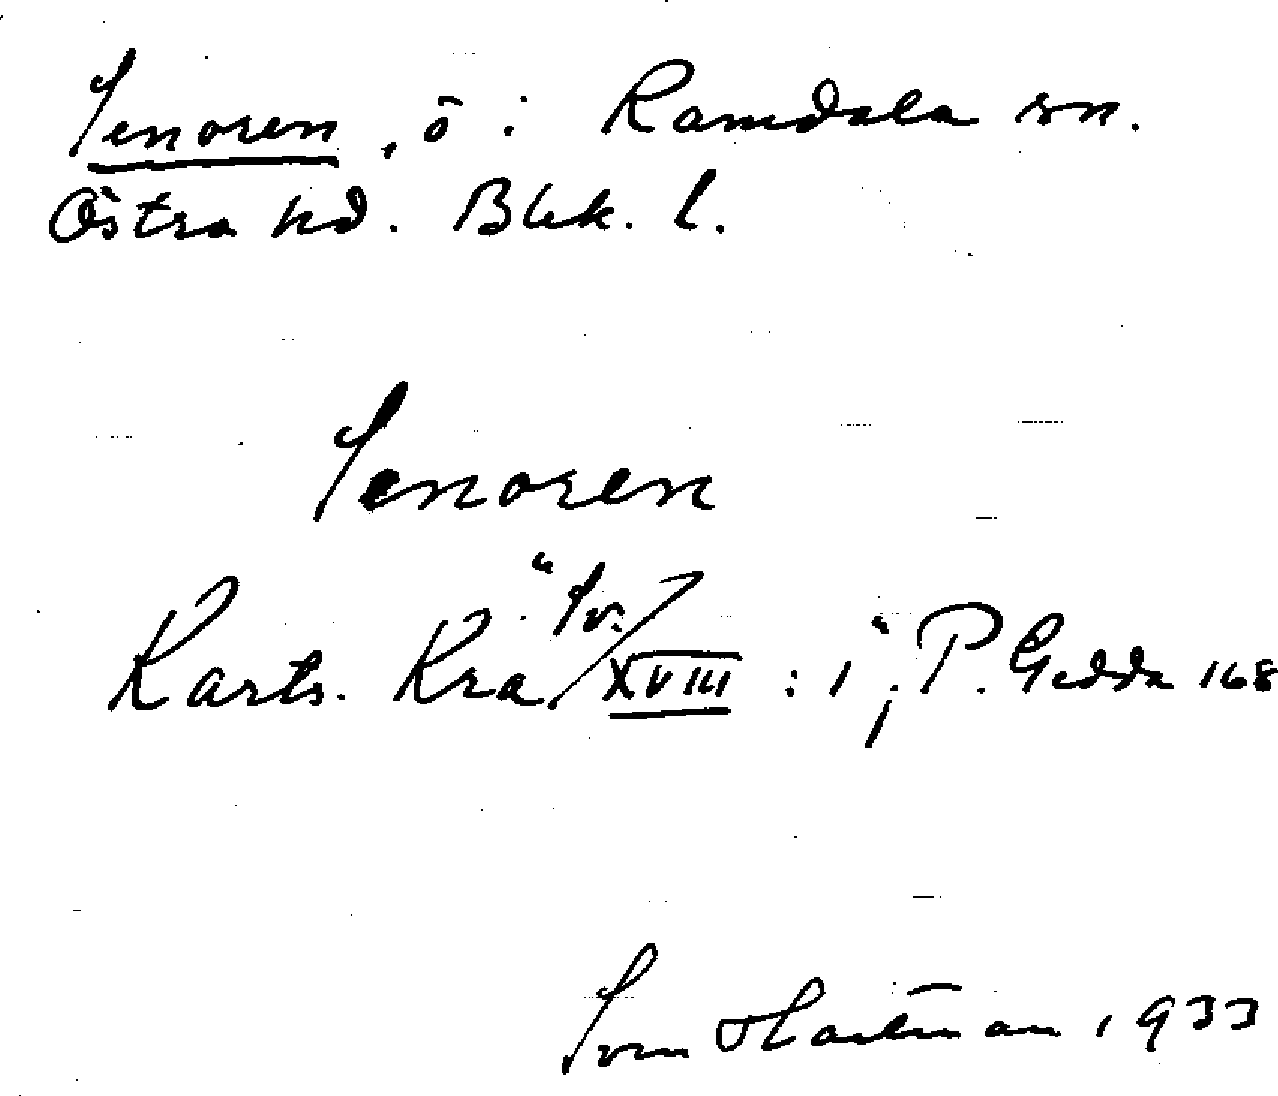 Senoren, ö i Ramdala sn.
Östra hd. Blek. l.
Senoren
Karts. Kra "Sv./XVIII : 1"; P. Gedda 168
Sven Hartman 1933